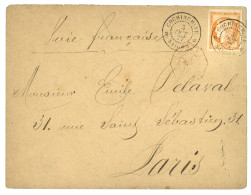 COCHINCHINE
Voie française
Monsieur Emile Delaval
31. rue Saint Sébastien. 31
Paris